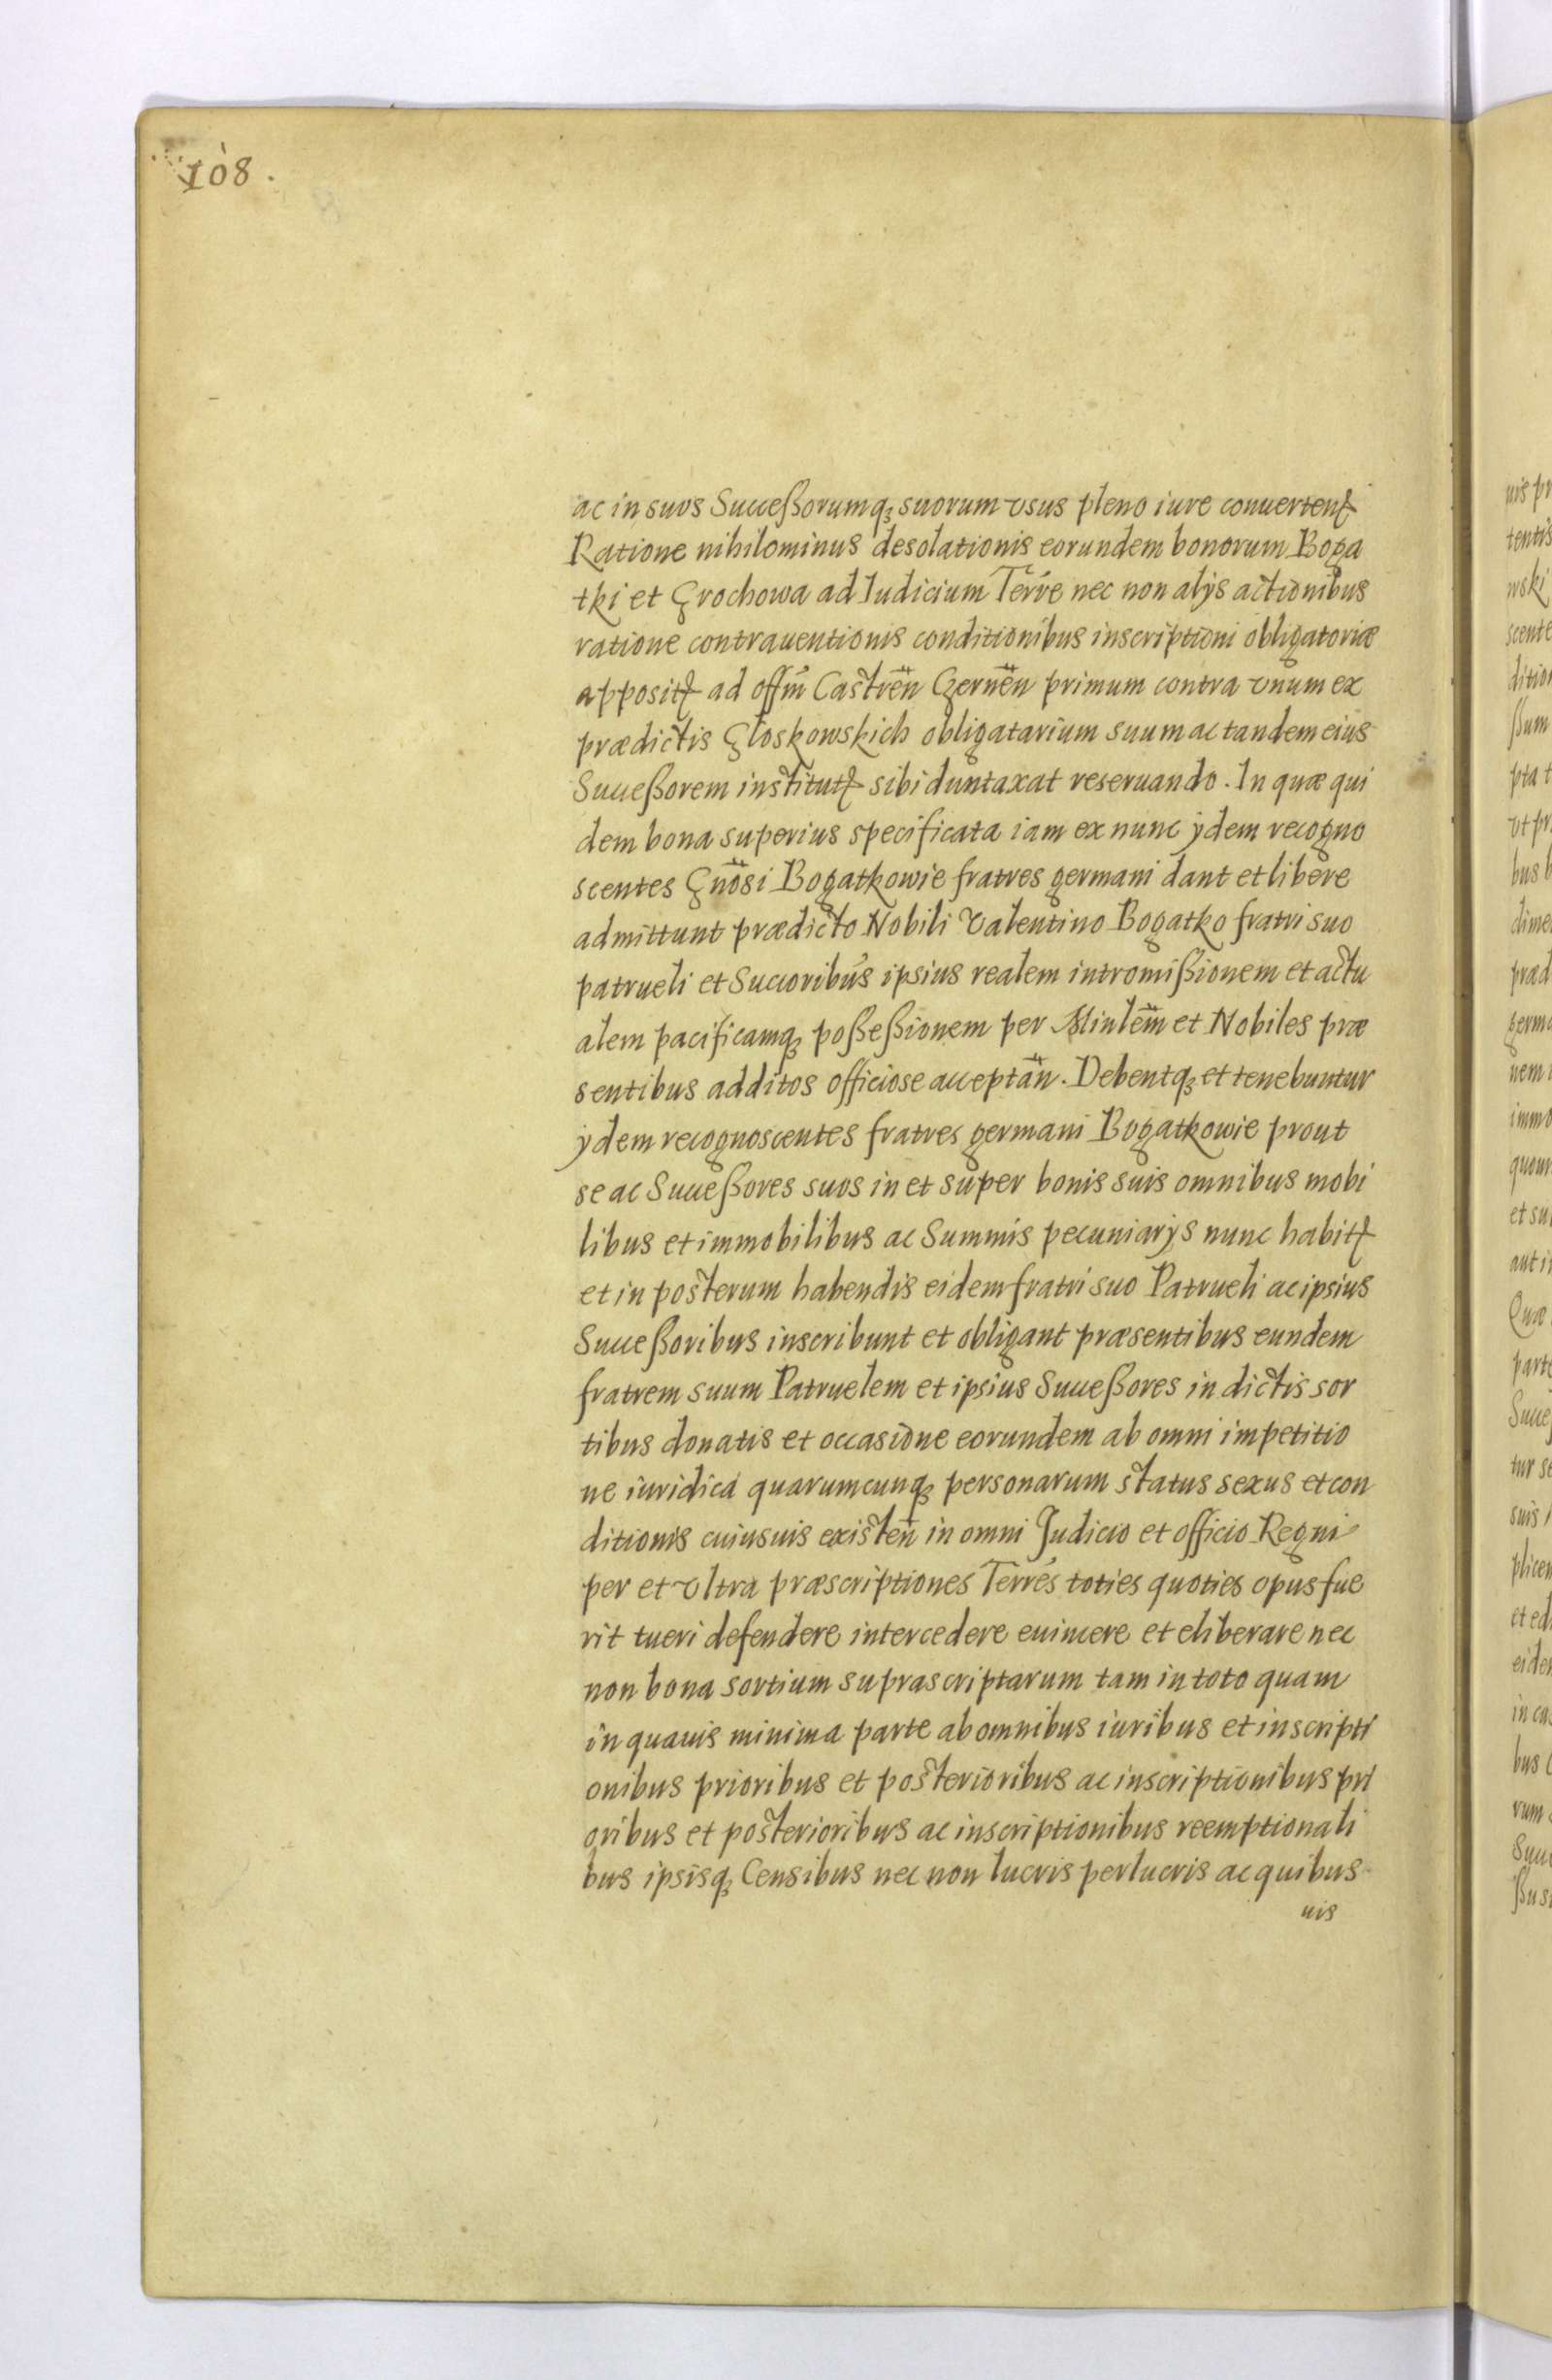 108.
ac in suos Succeßorumq; suorum vsus pleno iure conuerten̄
Ratione nihilominus desolationis eorundem bonorum Boga
tki et Grochowa ad Iudicium Terre nec non alijs actionibus
ratione contrauentionis conditionibus inscriptioni obligatoriæ
apposit̄ ad offm̄ Castren̄ Czernen̄ primum contra vnum ex
prædictis Gloskowskich obligatarium suum ac tandem eius
Succeßorem institut̄ sibi duntaxat reseruando. In quæ qui
dem bona superius specificata iam ex nunc ijdem recogno
scentes Gnosi Bogatkowie fratres germani dant et libere
admittunt prædicto Nobili Valentino Bogatko fratri suo
patrueli et Succoribus ipsius realem intromißionem et actu
alem pacificamq; poßeßionem per Minlem̄ et Nobiles præ
sentibus additos officiose acceptan̄. Debentq; et tenebuntur
ijdem recognoscentes fratres germani Bogatkowie prout
se ac Succeßores suos in et super bonis suis omnibus mobi
libus et immobilibus ac Summis pecuniarijs nunc habit̄
et in posterum habendis eidem fratri suo Patrueli ac ipsius
Succeßoribus inscribunt et obligant præsentibus eundem
fratrem suum Patruelem et ipsius Succeßores in dictis sor
tibus donatis et occasione eorundem ab omni impetitio
ne iuridica quarumcunq; personarum status sexus et con
ditionis cuiusuis existen̄ in omni Judicio et officio Regni
per et vltra præscriptiones Terres toties quoties opus fue
rit tueri defendere intercedere euincere et eliberare nec
non bona sortium suprascriptarum tam in toto quam
in quauis minima parte ab omnibus iuribus et inscripti
onibus prioribus et posterioribus ac inscriptionibus pri
oribus et posterioribus ac inscriptionibus reemptionali
bus ipsisq; Censibus nec non lucris perlucris ac quibus
uis